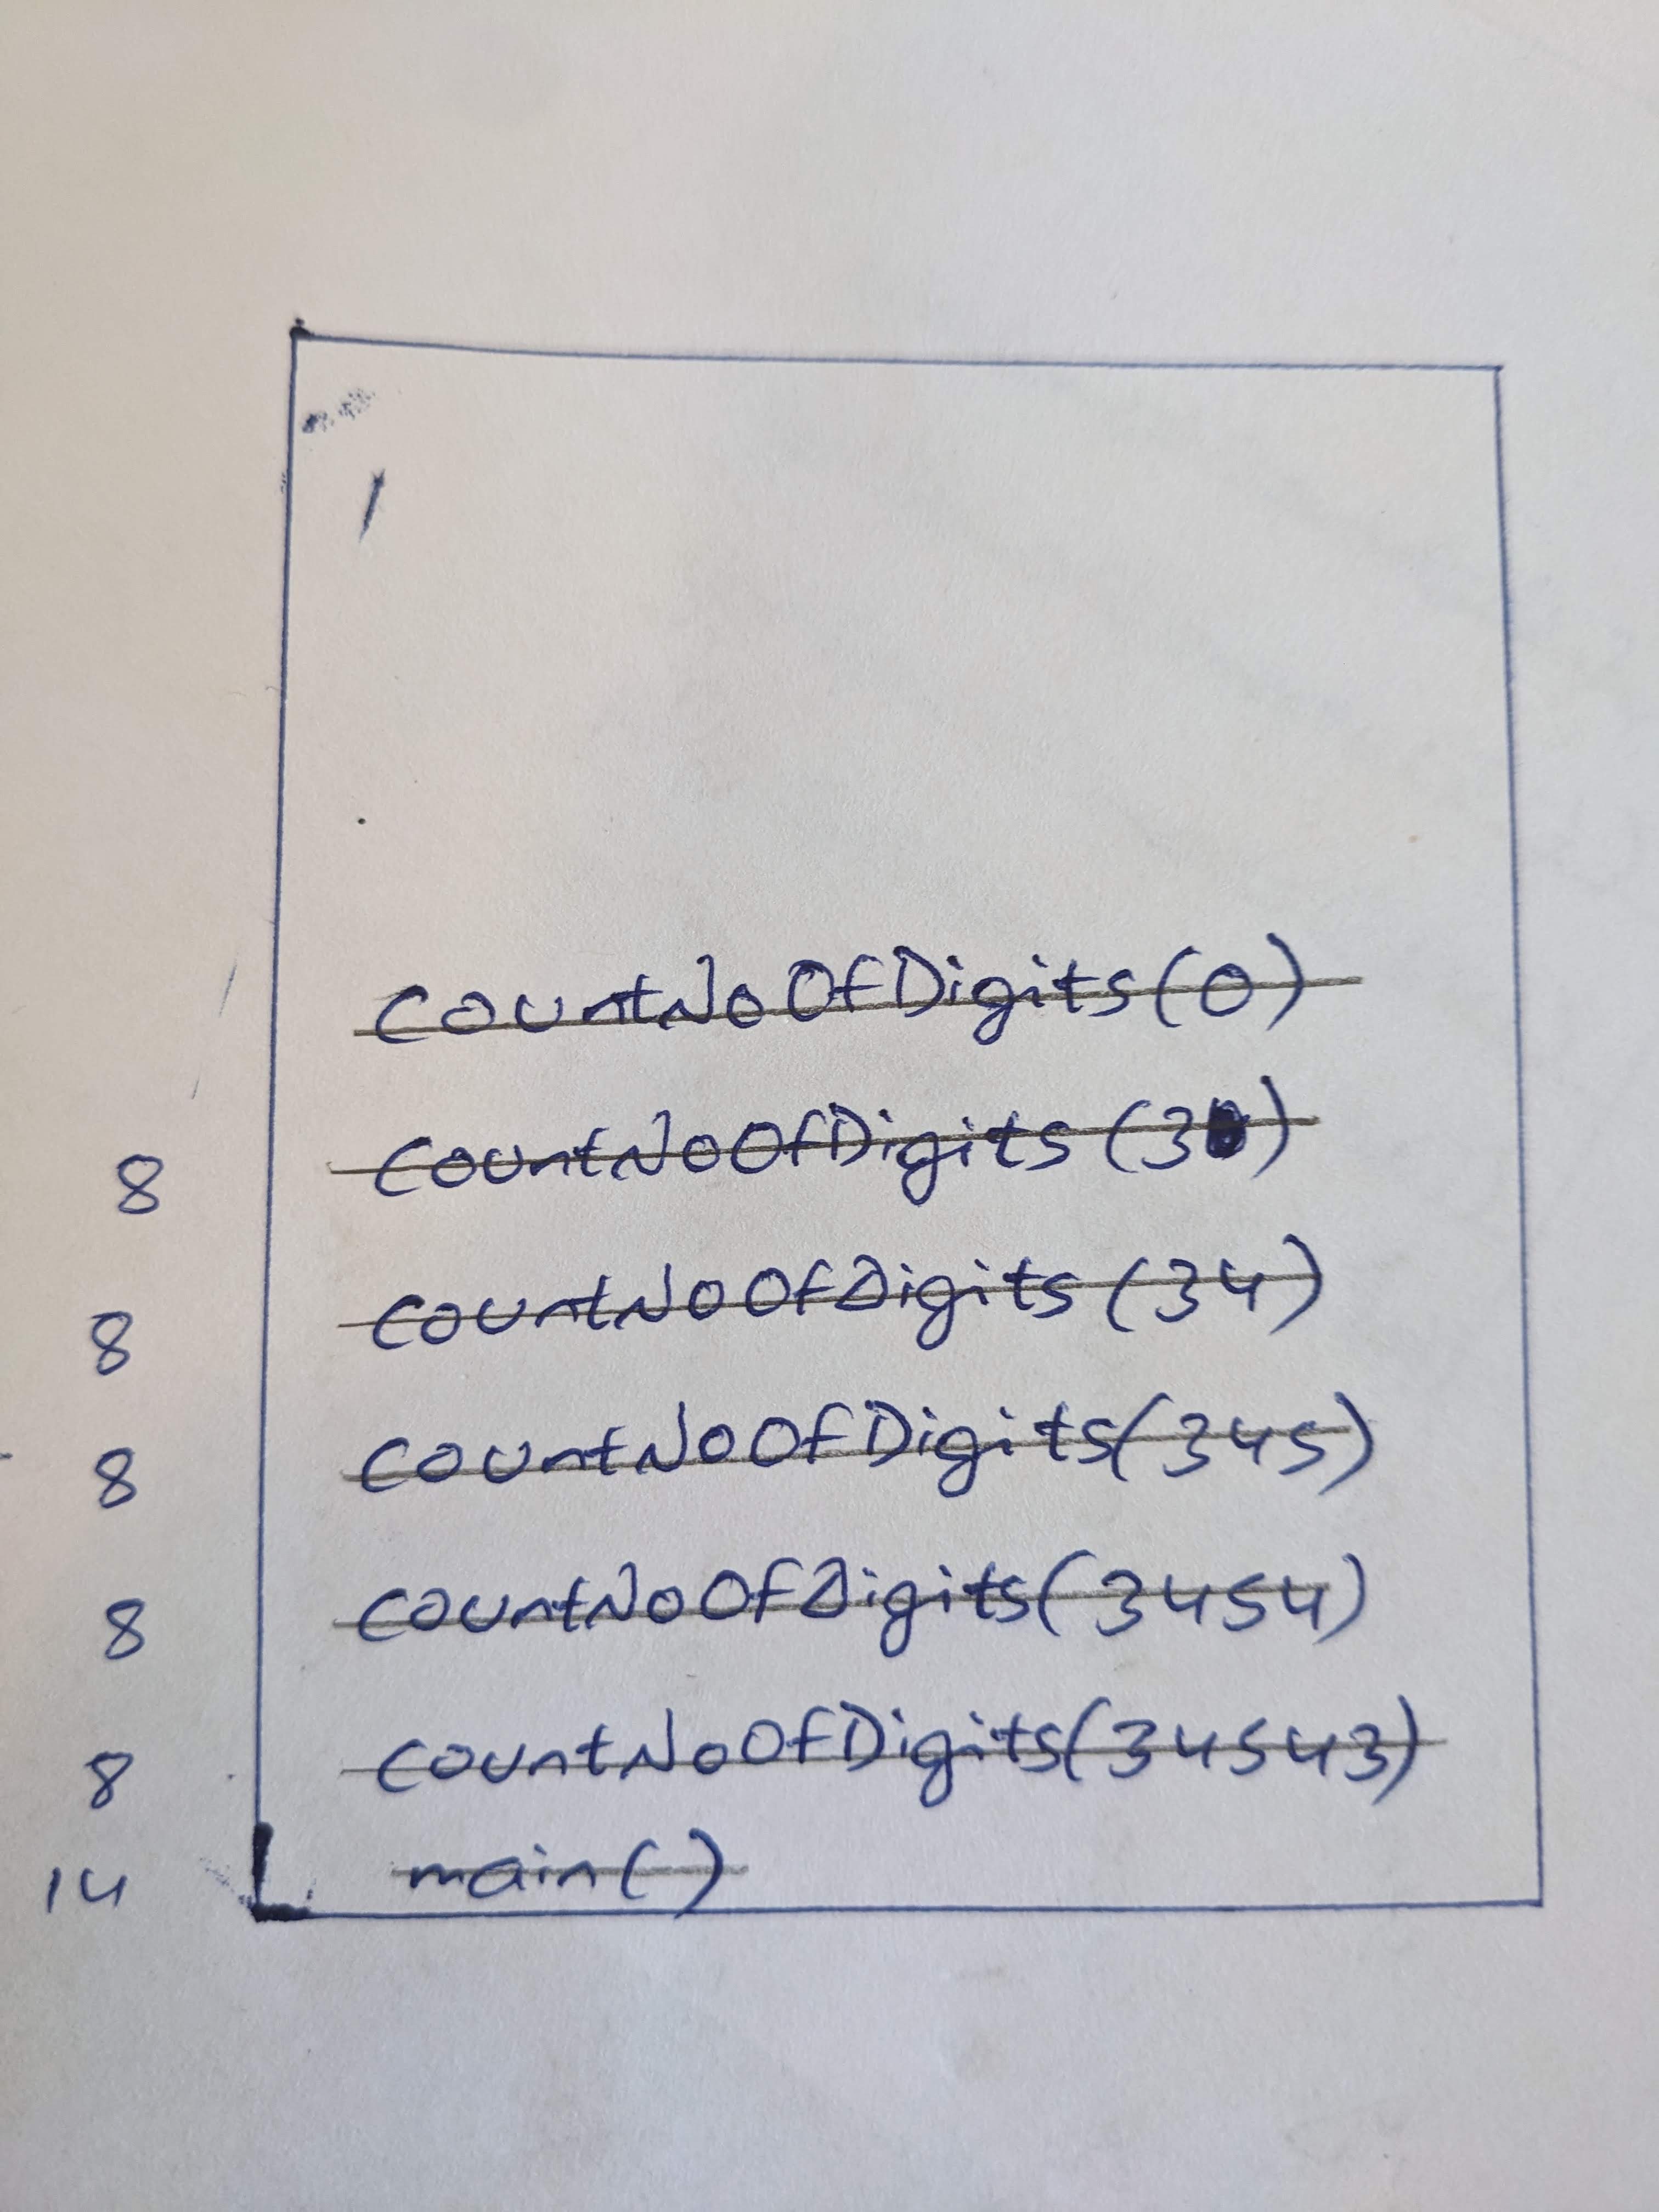 countNoOfDigits(0)
8 countNoOfDigits(3)
8 countNoOfDigits(34)
8 countNoOfDigits(345)
8 countNoOfDigits(3454)
8 countNoOfDigits(34543)
14 main()